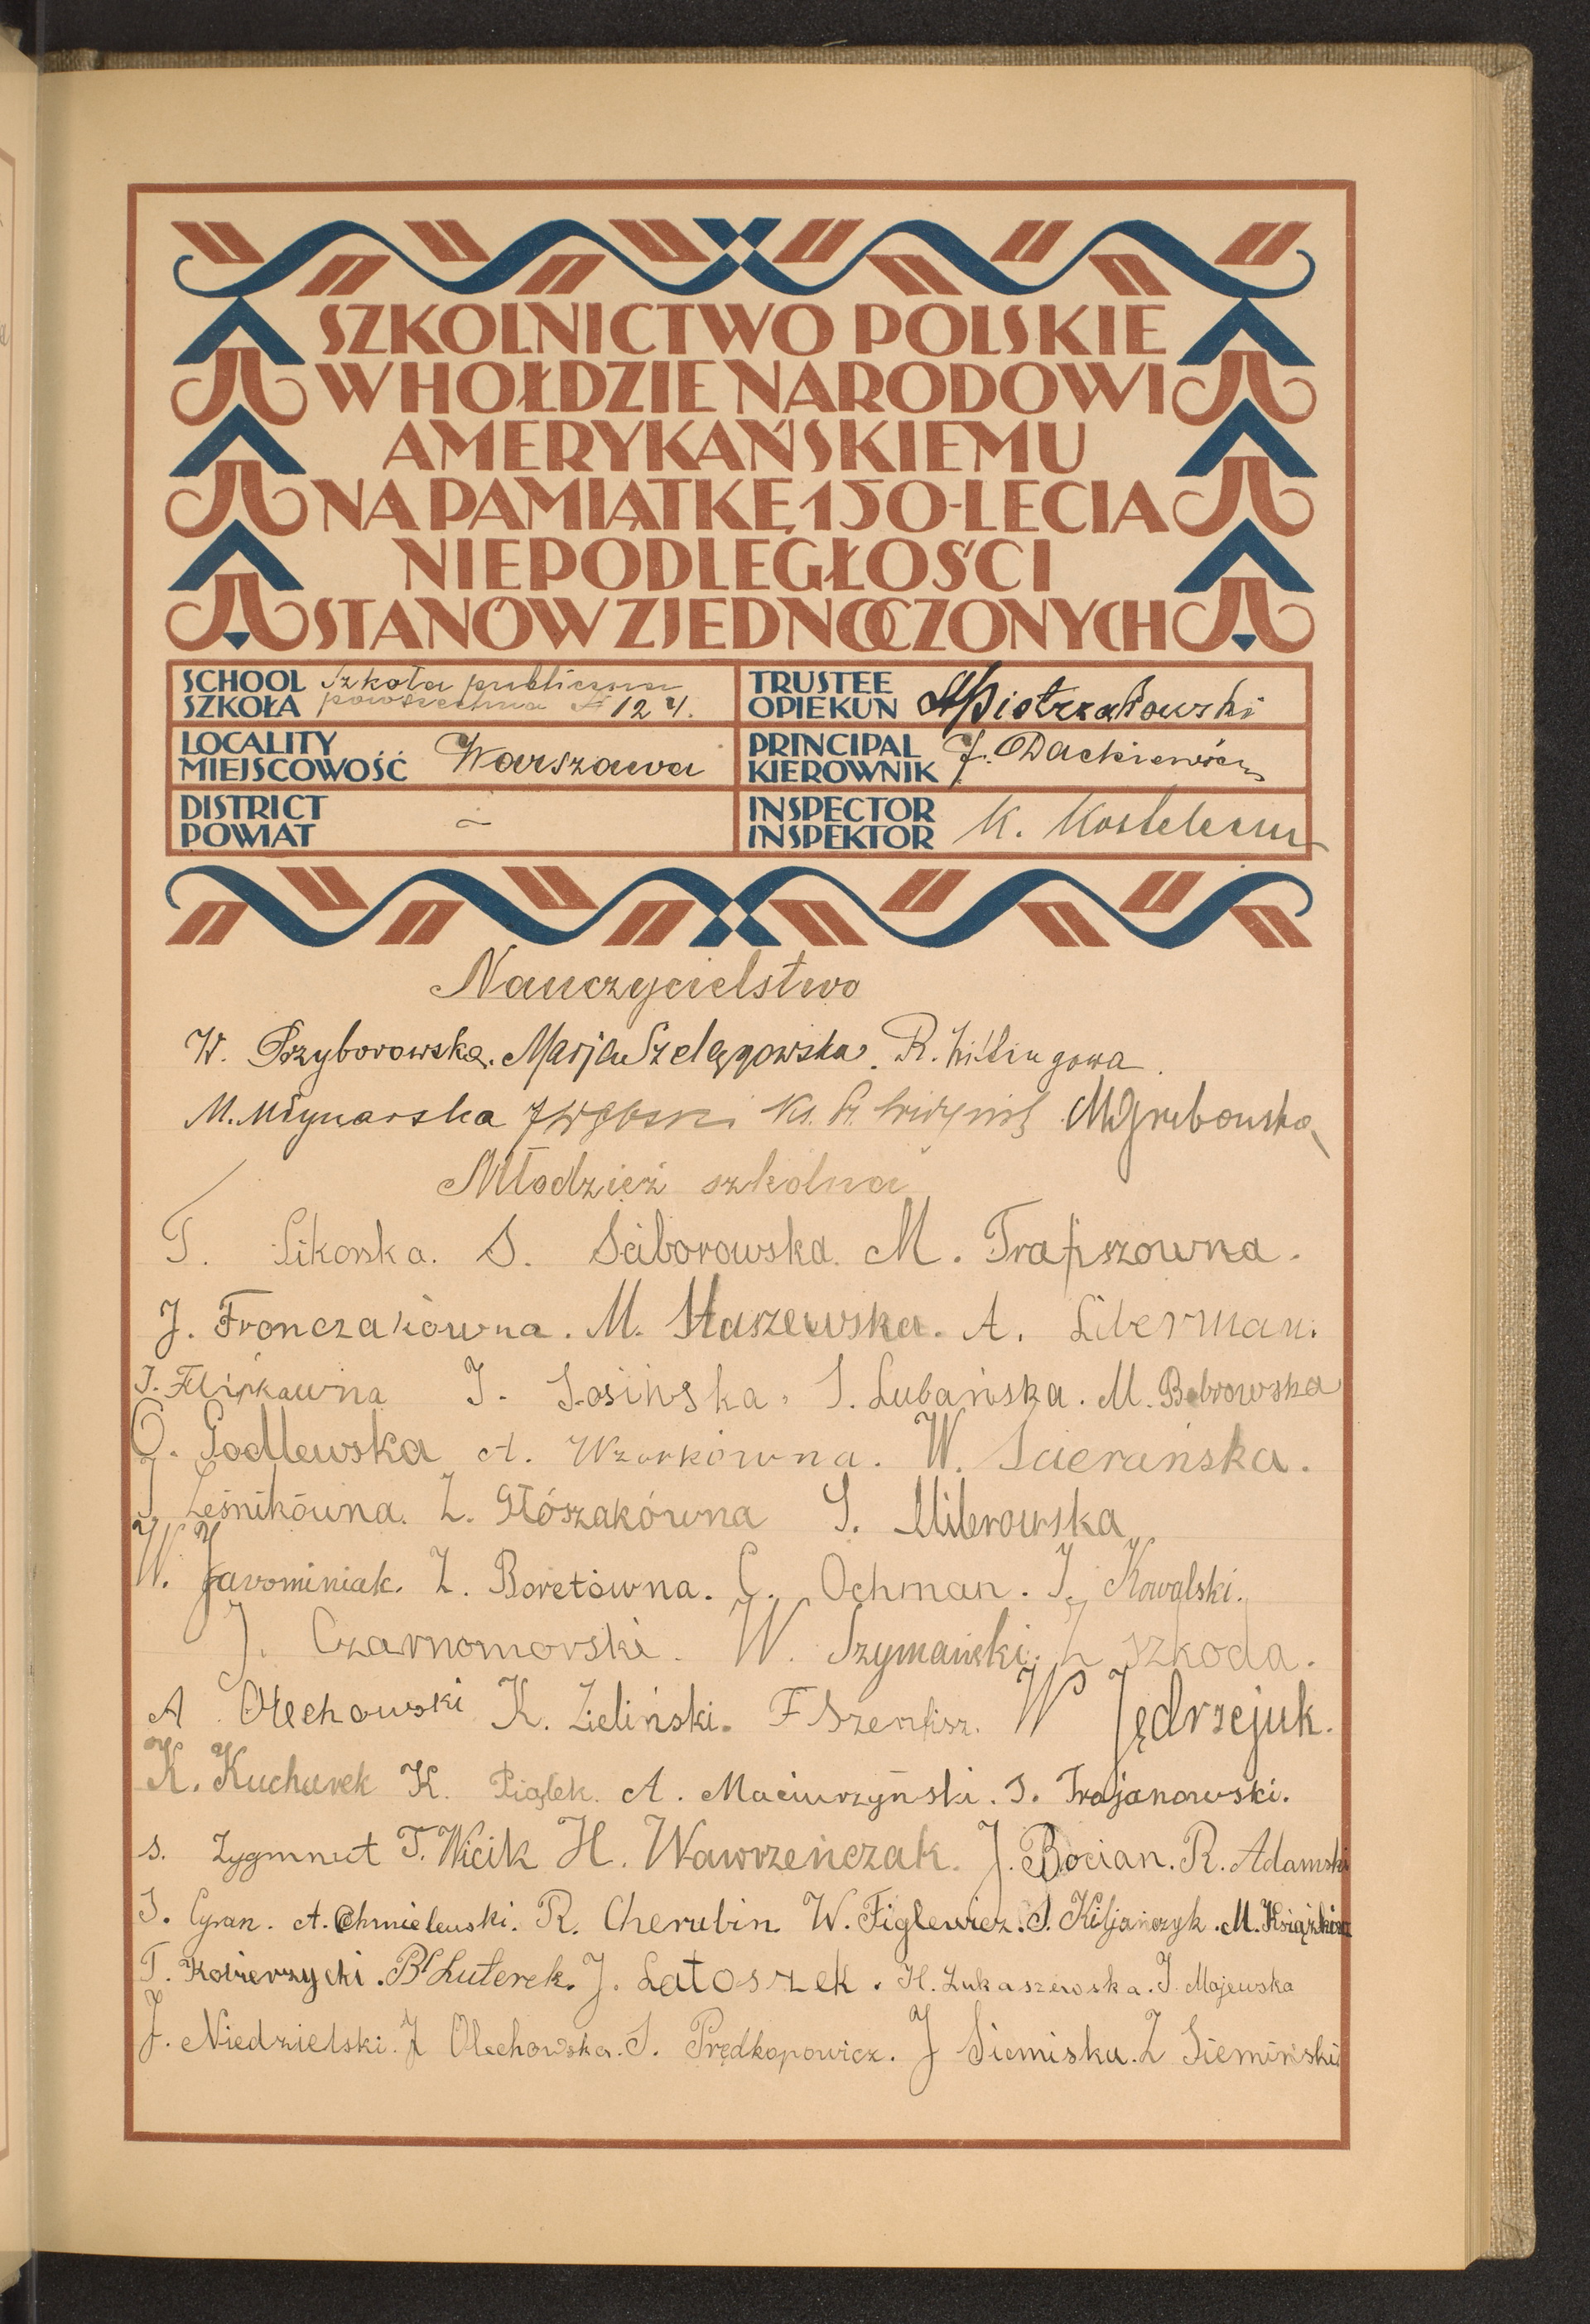 SZKOLNICTWO POLSKIE
W HOŁDZIE NARODOWI
AMERYKAŃSKIEMU
NA PAMIĄTKĘ 150-LECIA
NIEPODLEGŁOŚCI
STANÓW ZJEDNOCZONYCH
SCHOOL SZKOŁA Szkoła publiczna powszechna № 124.
TRUSTEE OPIEKUN Piotrzakowski
LOCALITY MIEJSCOWOŚĆ Warszawa
PRINCIPAL KIEROWNIK J. Dackiewicz
DISTRICT POWIAT –
INSPECTOR INSPEKTOR K.
Nauczycielstwo
W. Przyborowska. Marja Szelągowska. R.
M. Młynarska M Grabowska
Młodzież szkolna
T. Sikorska. S. Saborowska. M. Trapszowna.
J. Fronczakówna. M. Staszewska. A. Liberman.
J. J. Łosińska. J. Lubańska. M. Bobrowska
O. Podlewska A. W. Scierańska.
J Leśnikówna. Z. Głószakówna S. Milerowska
W. Jarominiak. Z. Boretówna. C. Ochman. J. Kowalski.
J. Czarnomorski. W. Szymański. Z szkoda.
A Olechowski K. Zieliński. F Szenfisz. W Jędrzejuk.
K. Kucharek K. Piątek. A. Maciurzyński. S. Trojanowski.
S. Zygmnut T. Wicik H. Wawrzeńczak. J. Bocian. R. Adamski
S. Cyran. A. Chmielewski. R. Cherubin W. Figlewicz. S. Kiljańczyk. M.
T. Kobierzycki. Bł Luterek. J. Latoszek. H. Łukaszewska. J. Majewska
J. Niedzielski. J Olechowska. S. Prędkopowicz. J Siemiska. Z Siemiński